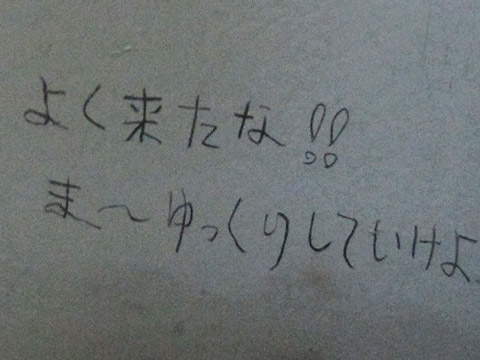 よく来たな!!
ま〜ゆっくりしていけよ